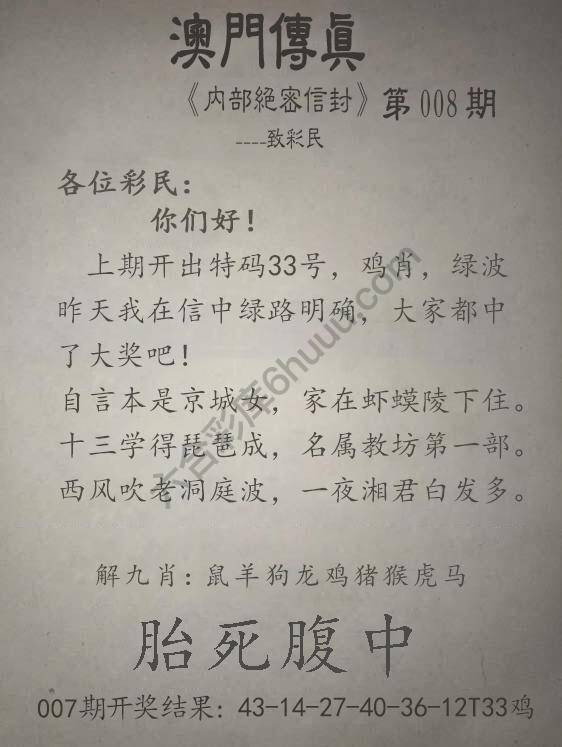 澳門傳眞
《内部絕密信封》第008期
----致彩民
各位彩民:
你们好!
上期开出特码33号，鸡肖，绿波
昨天我在信中绿路明确，大家都中
了大奖吧!
自言本是京城女，家在虾蟆陵下住。
十三学得琵琶成，名属教坊第一部。
西风吹老洞庭波，一夜湘君白发多。
解九肖:鼠羊狗龙鸡猪猴虎马
胎死腹中
007期开奖结果: 43-14-27-40-36-12T33鸡
六合彩库6huuu.com